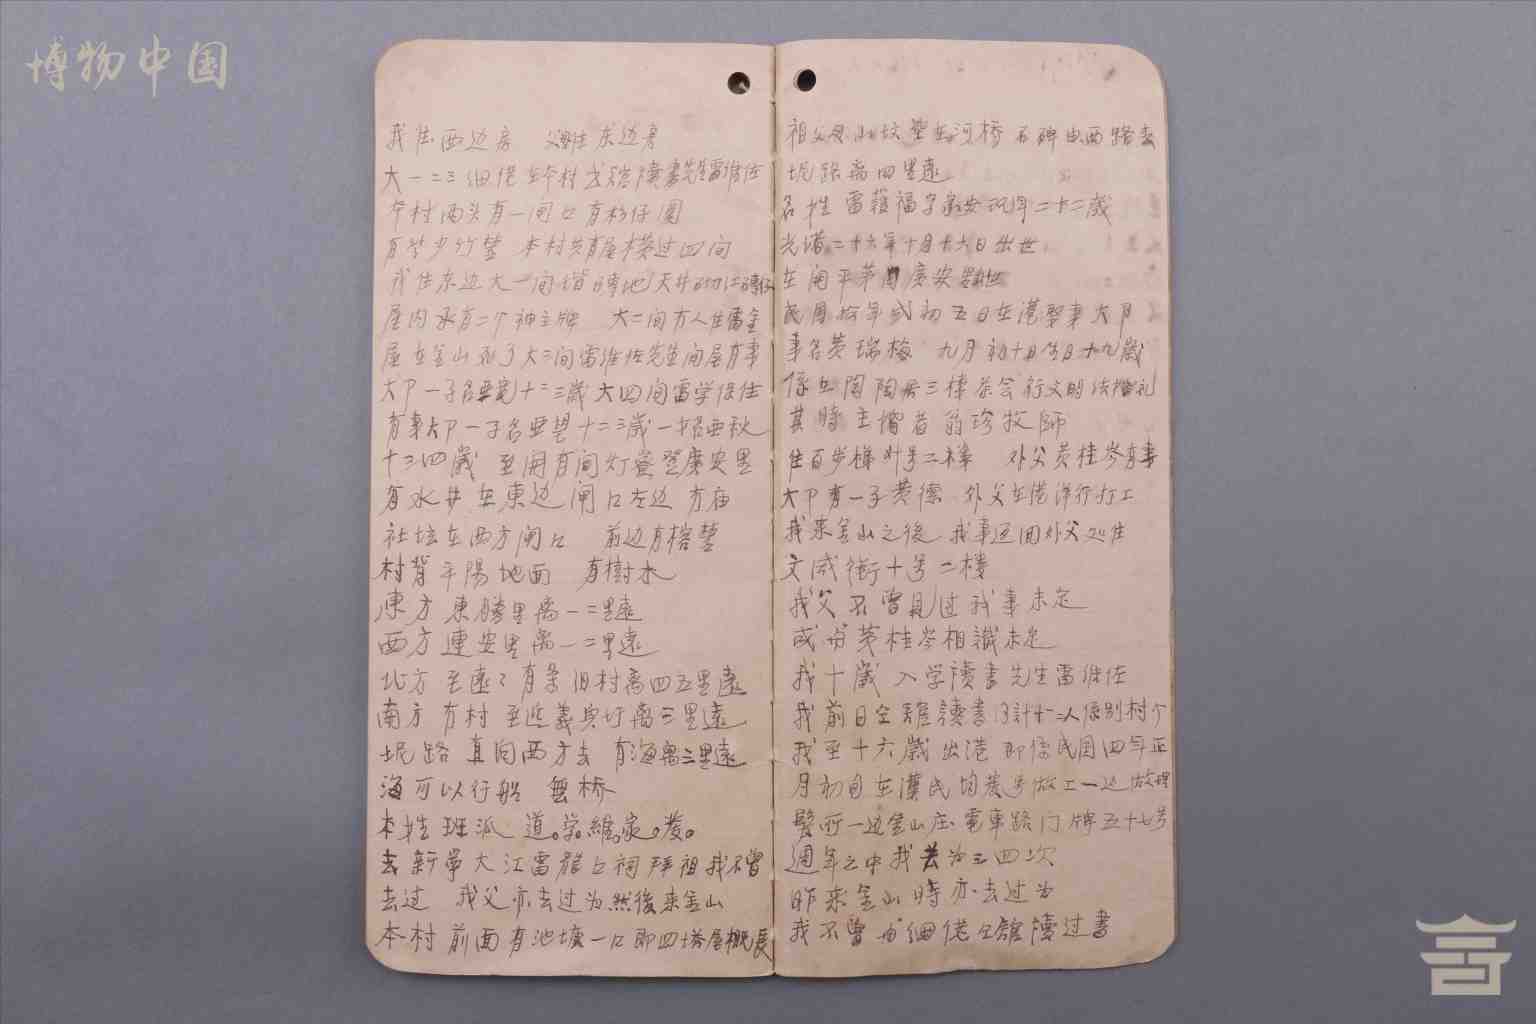 博物中国
我住西边房 父母住东边房
大一二三细佬在本村书馆读书先生雷维佐
本村两头有一闸口有杉仔围
有些少竹䓫 本村共有屋楼过四间
我住东边大一间堦砖地天井砌红砖仔
屋内承有二个神主牌 大二间方人住雷金
屋在金山死了大三间雷维佐先生间屋有妻
大户一子名亜寬十二三歲大四间雷学保住
有妻大户一子名亜塱十二三歲一女名亜秋
十三四歲 至閙有间灯寮登廣安里
有水井在東边闸口左边 方庙
社坛在西方闸口 前边有榕䓫
村背平陽地面 有樹木
東方東勝里离一二里遠
西方連安里离一二里遠
北方至遠之有条旧村离四五里遠
南方有村至近義興圩离三里遠
坭路直向西方去 有海离三里遠
海可以行船 無桥
本姓班派 道。学。維。家。发。
去新寧大江雷龍丘祠拜祖我不曾
去过 我父亦去过为然後来金山
本村前面有池塘一口即四塔屋概長
祖父母山坟塟在河桥石碑由西路去
坭路离四里遠
名姓雷葅福字家安现年二十二歲
光谱二十六年十月十六日出世
在開平茅岡廣安里出世
民国拾年弍初五日在港娶妻大户
妻名黄瑞梅 九月初十日生日十九歲
係在陶陶居三楼茶会行文明结婚礼
其時主婚者翁珍牧師
住百步梯卅号二楼 外父黄桂岑有妻
大户有一子黄德 外父在港洋行打工
我来金山之後我妻返回外父处住
文咸街十号二楼
我父不曾見过我妻未定
或与黄桂岑相識未定
我十歲入学讀書先生雷维佐
我前日仝雖讀書同計十二人係别村个
我至十六歲出港即係民国四年正
月初旬在廣民均发号做工一边做理
髮所一边金山庄電車路门牌五十七号
週年之中我去为三四次
昨来金山時亦去过为
我不曾与细佬仝舘讀过書